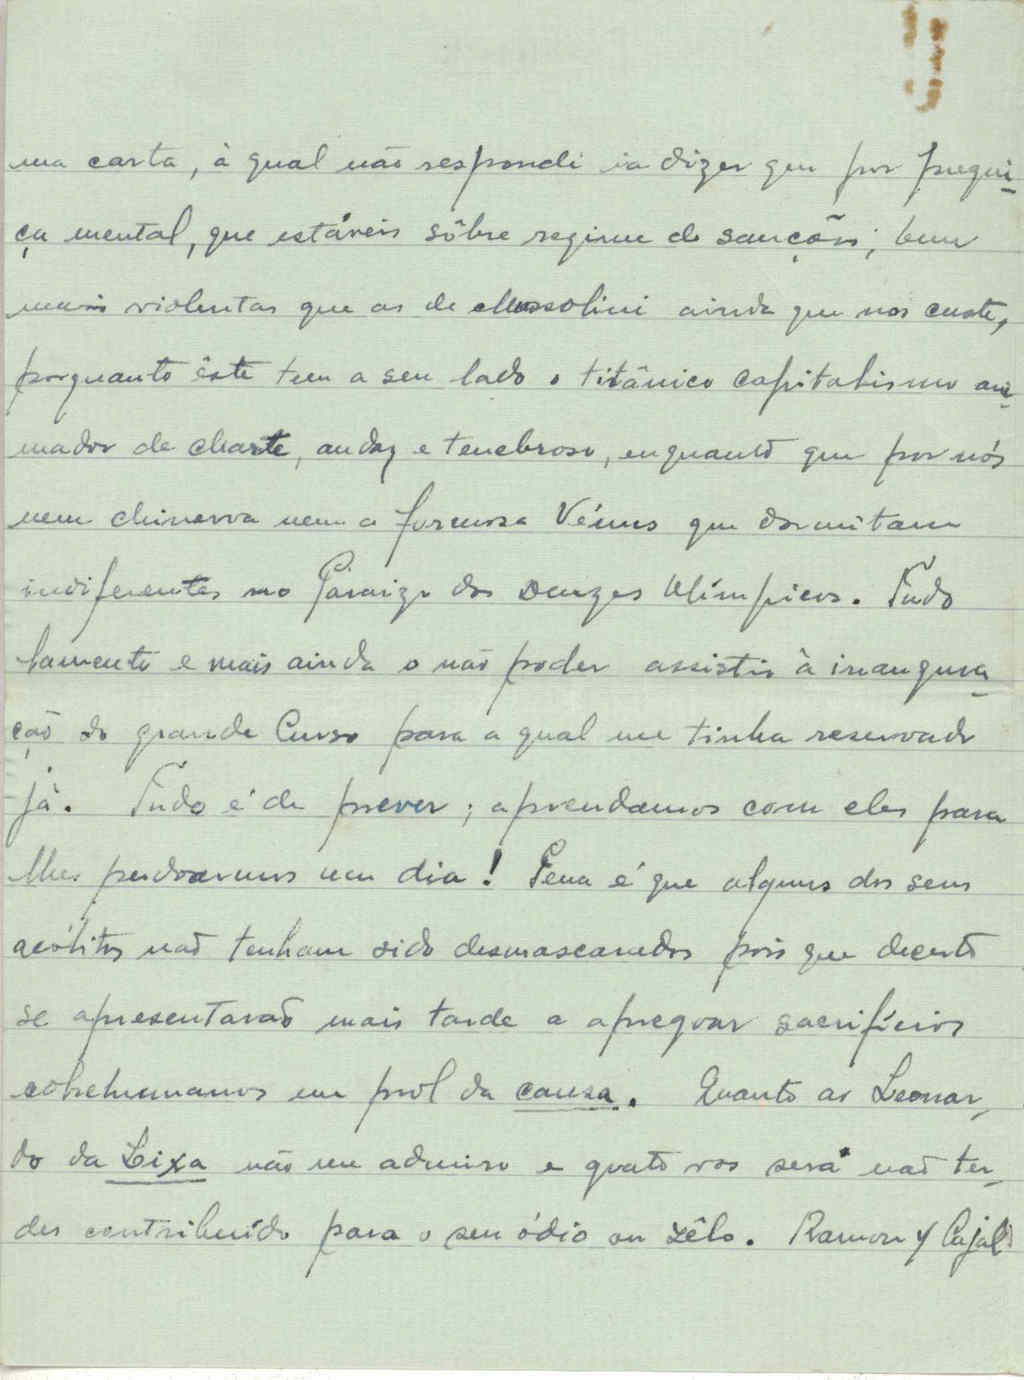 ma carta, à qual não respondi ia dizer que por pregui-
ça mental, que estáveis sôbre regime de sanções; bem
mais violentas que as de Mussolini ainda que nos custe,
porquanto êste tem a seu lado o titânico capitalismo ani-
mador de Marte, audaz e tenebroso, enquanto que por nós
nem Minerva nem a formosa Vénus que dormitam
indiferentes no Paraizo dos Deuzes Olímpicos. Tudo
lamento e mais ainda o não poder assistir à inaugura-
ção do grande Curso para a qual me tinha reservado
já. Tudo é de prever; aprendamos com eles para
lhes perdoarmos um dia! Pena é que alguns dos seus
acólitos não tenham sido desmascarados pois que decerto
se apresentarão mais tarde a apregoar sacrifícios
sobrehumanos em prol da causa. Quanto ao Leonar-
do da Lixa não me admiro e grato vos será não ter-
des contribuído para o seu ódio ou zêlo. Ramon y Cajal